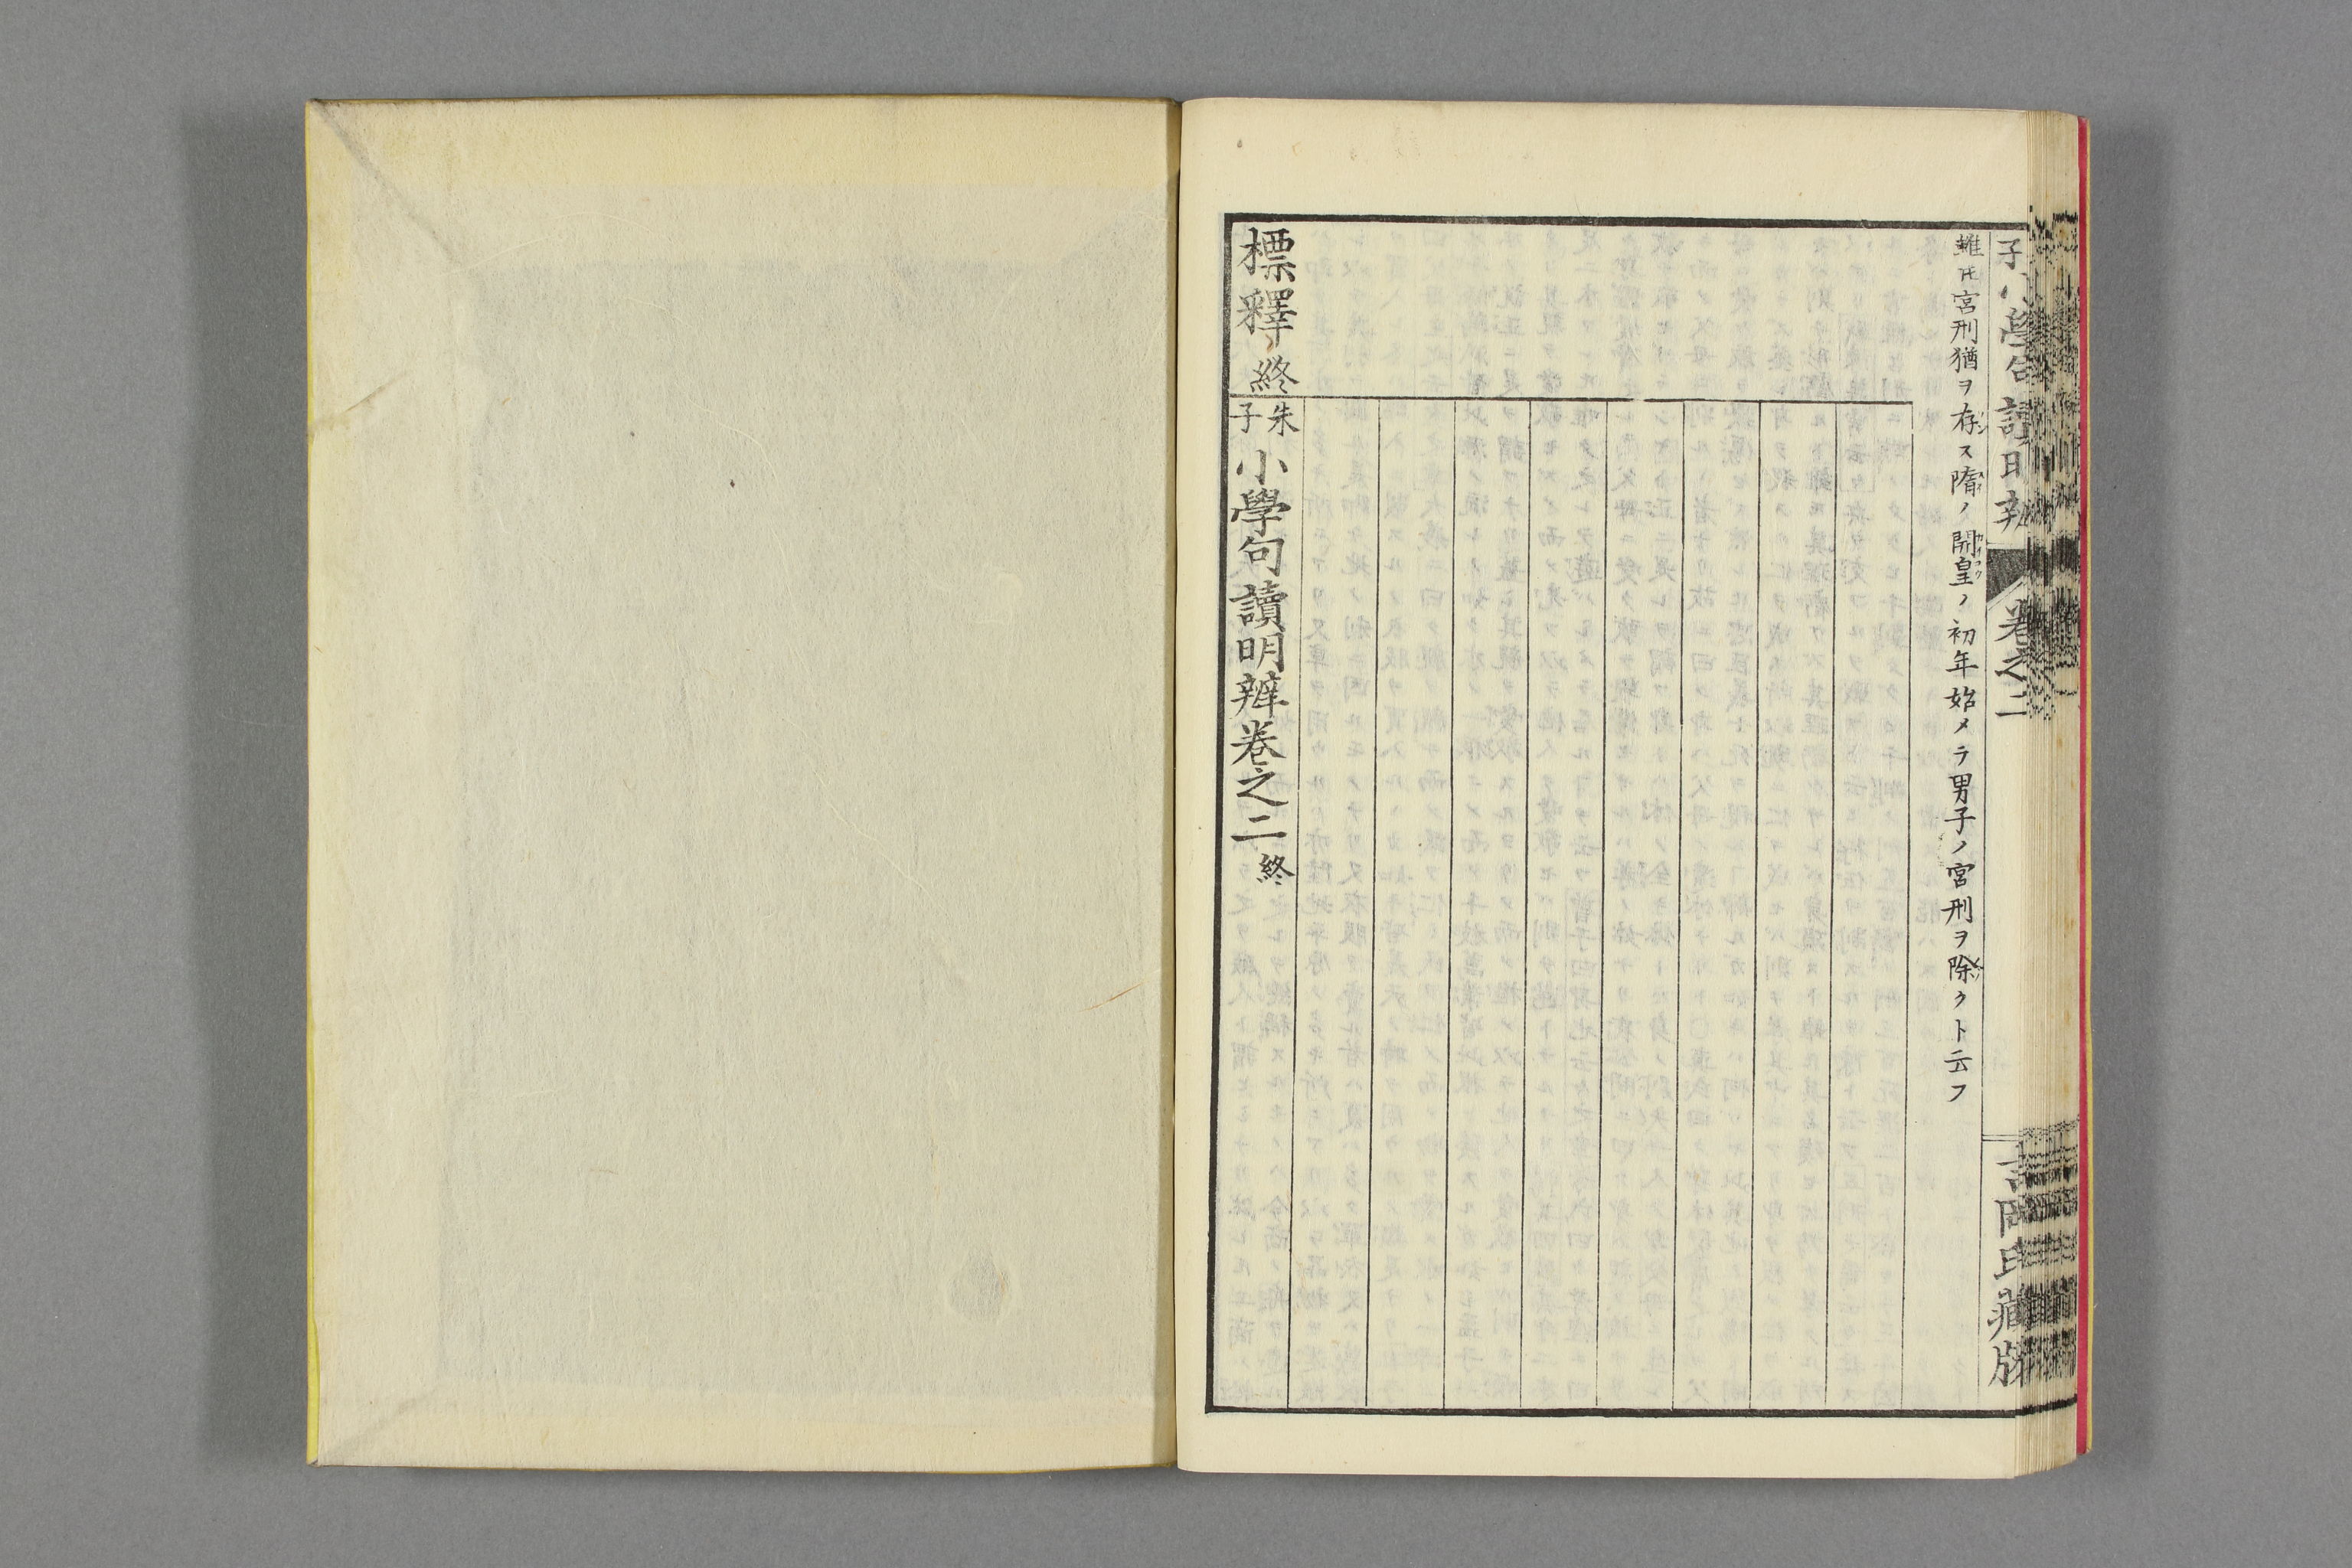 子小學句讀明辨 卷之二 吉岡氏藏版
雖ㇳ𪜈宮刑猶ヲ存ス隋ノ開皇ノ初年始メテ男子ノ宮刑ヲ除クト云フ
標釋終
朱子小學句讀明辨卷之二終